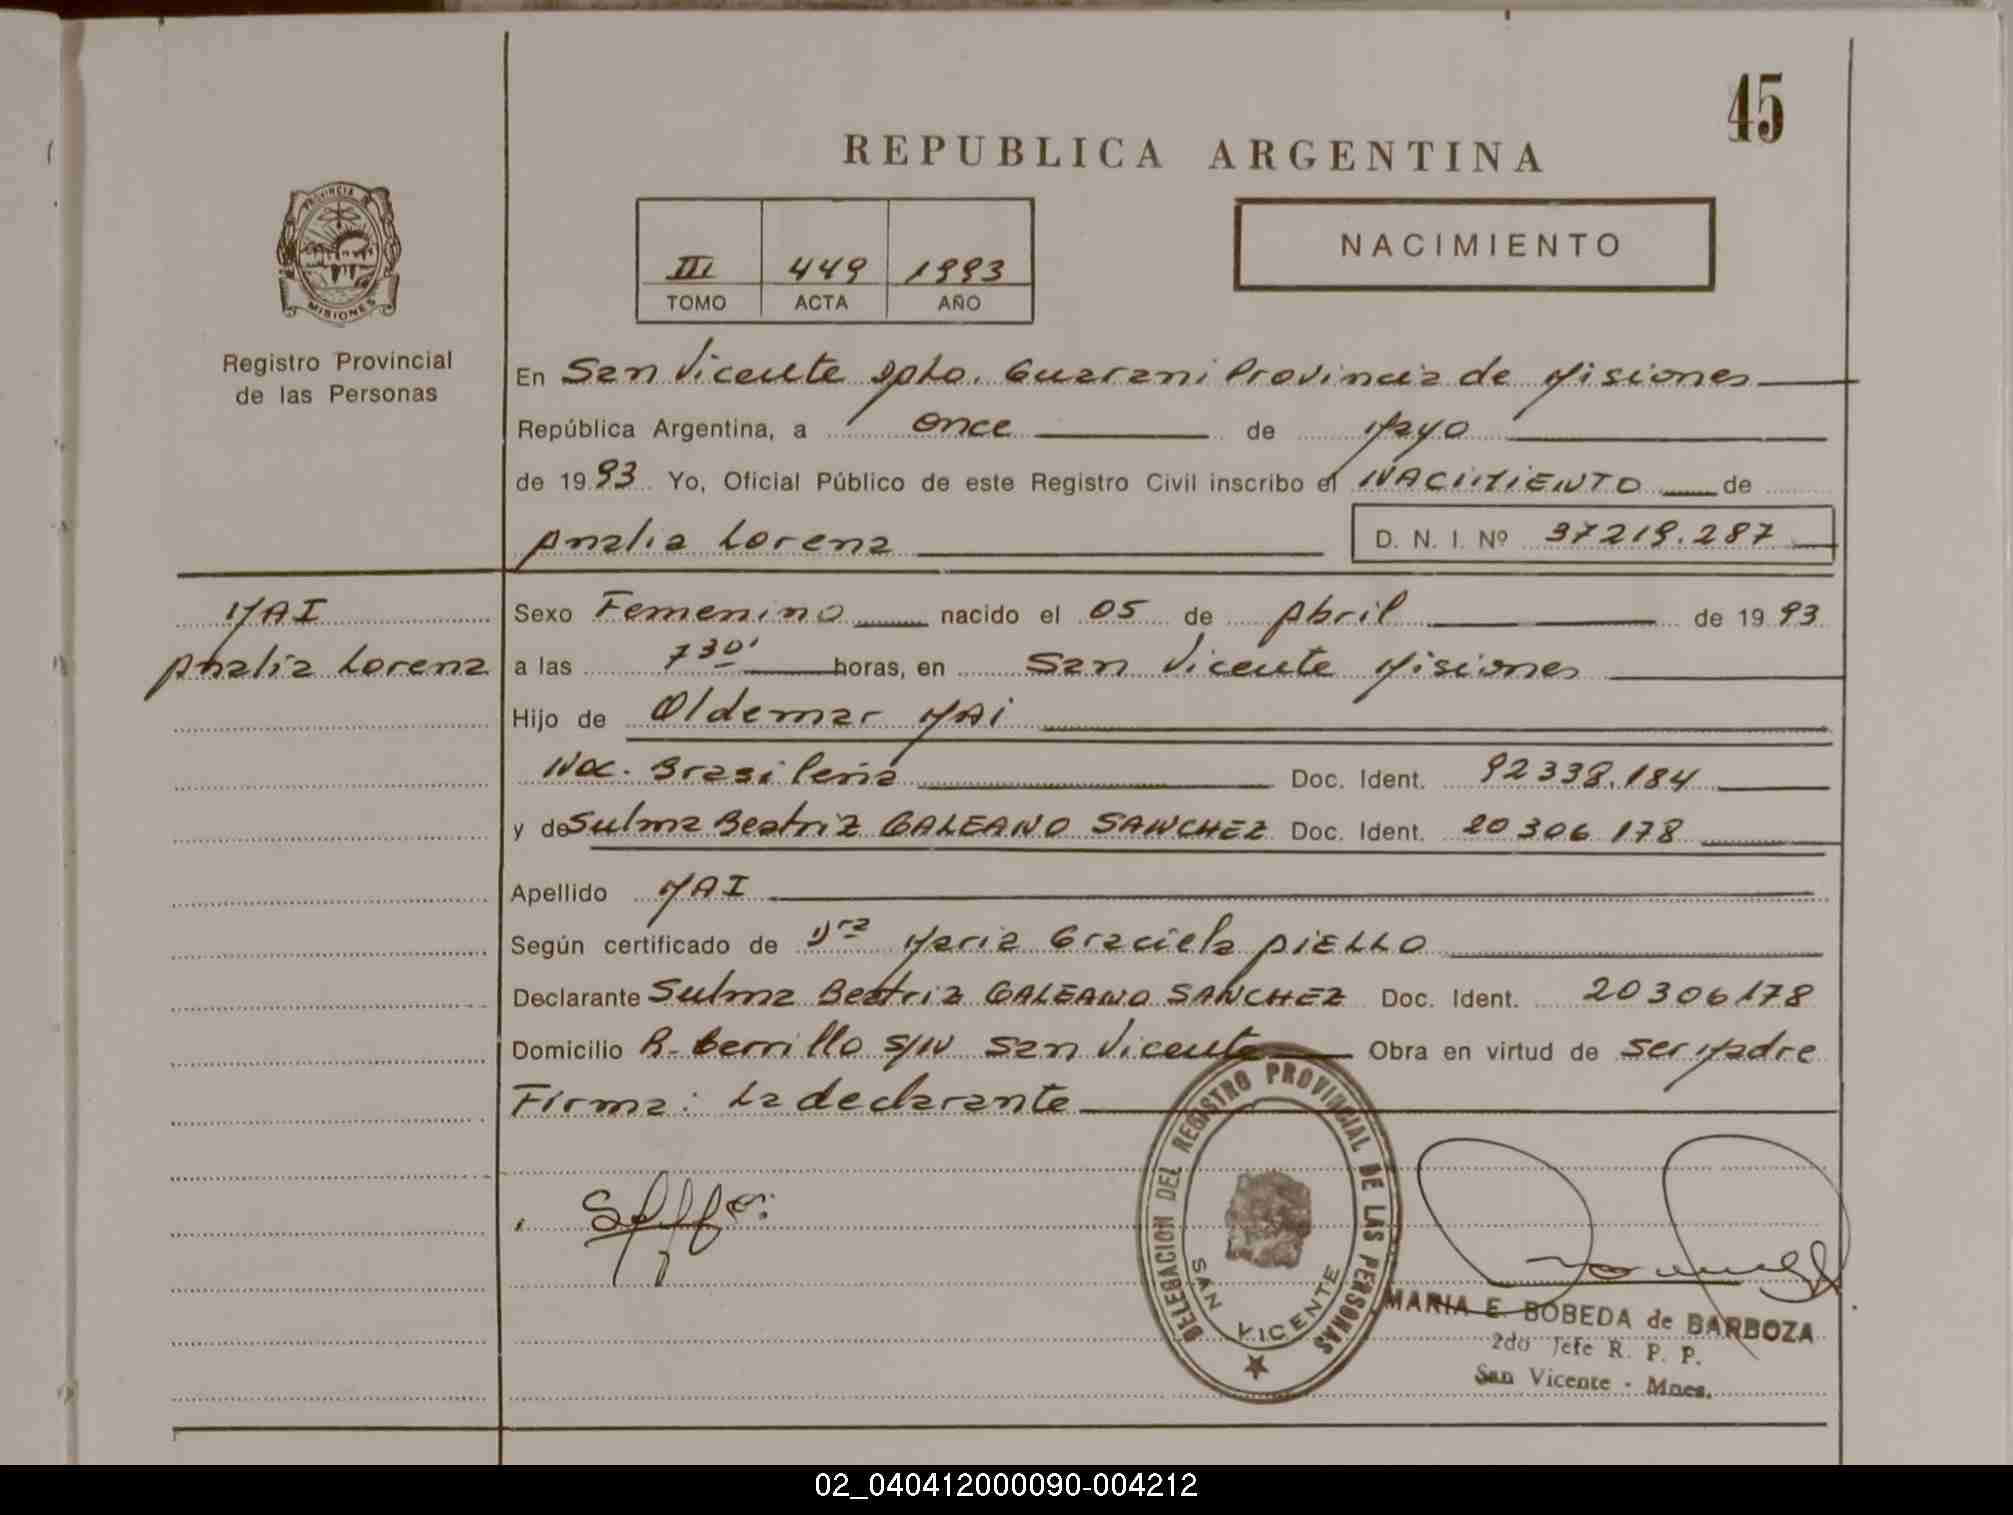 45
REPUBLICA ARGENTINA
PROVINCIA DE MISIONES
III 449 1993
TOMO ACTA AÑO
NACIMIENTO
Registro Provincial
de las Personas
En San Vicente Dpto. Guarani Provincia de Misiones
República Argentina, a once de Mayo
de 1993 Yo, Oficial Público de este Registro Civil inscribo el NACIMIENTO de
Analia Lorena D. N. I. Nº 37219.287
MAI
Analia Lorena
Sexo Femenino nacido el 05 de Abril de 1993
a las 7 30' horas, en San Vicente Misiones
Hijo de Oldemar MAi
Nac. Brasileña Doc. Ident. 92338.184
y de Sulma Beatriz GALEANO SANCHEZ Doc. Ident. 20306178
Apellido MAI
Según certificado de Dra Maria Graciela AiELLO
Declarante Sulma Beatriz GALEANO SANCHEZ Doc. Ident. 20306178
Domicilio B- Cerrillo S/N San Vicente Obra en virtud de ser Madre
Firma: La declarante
DELEGACION DEL REGISTRO PROVINCIAL DE LAS PERSONAS
SAN VICENTE
MARIA E. BOBEDA de BARBOZA
2do Jefe R. P. P.
San Vicente - Mnes.
02_040412000090-004212